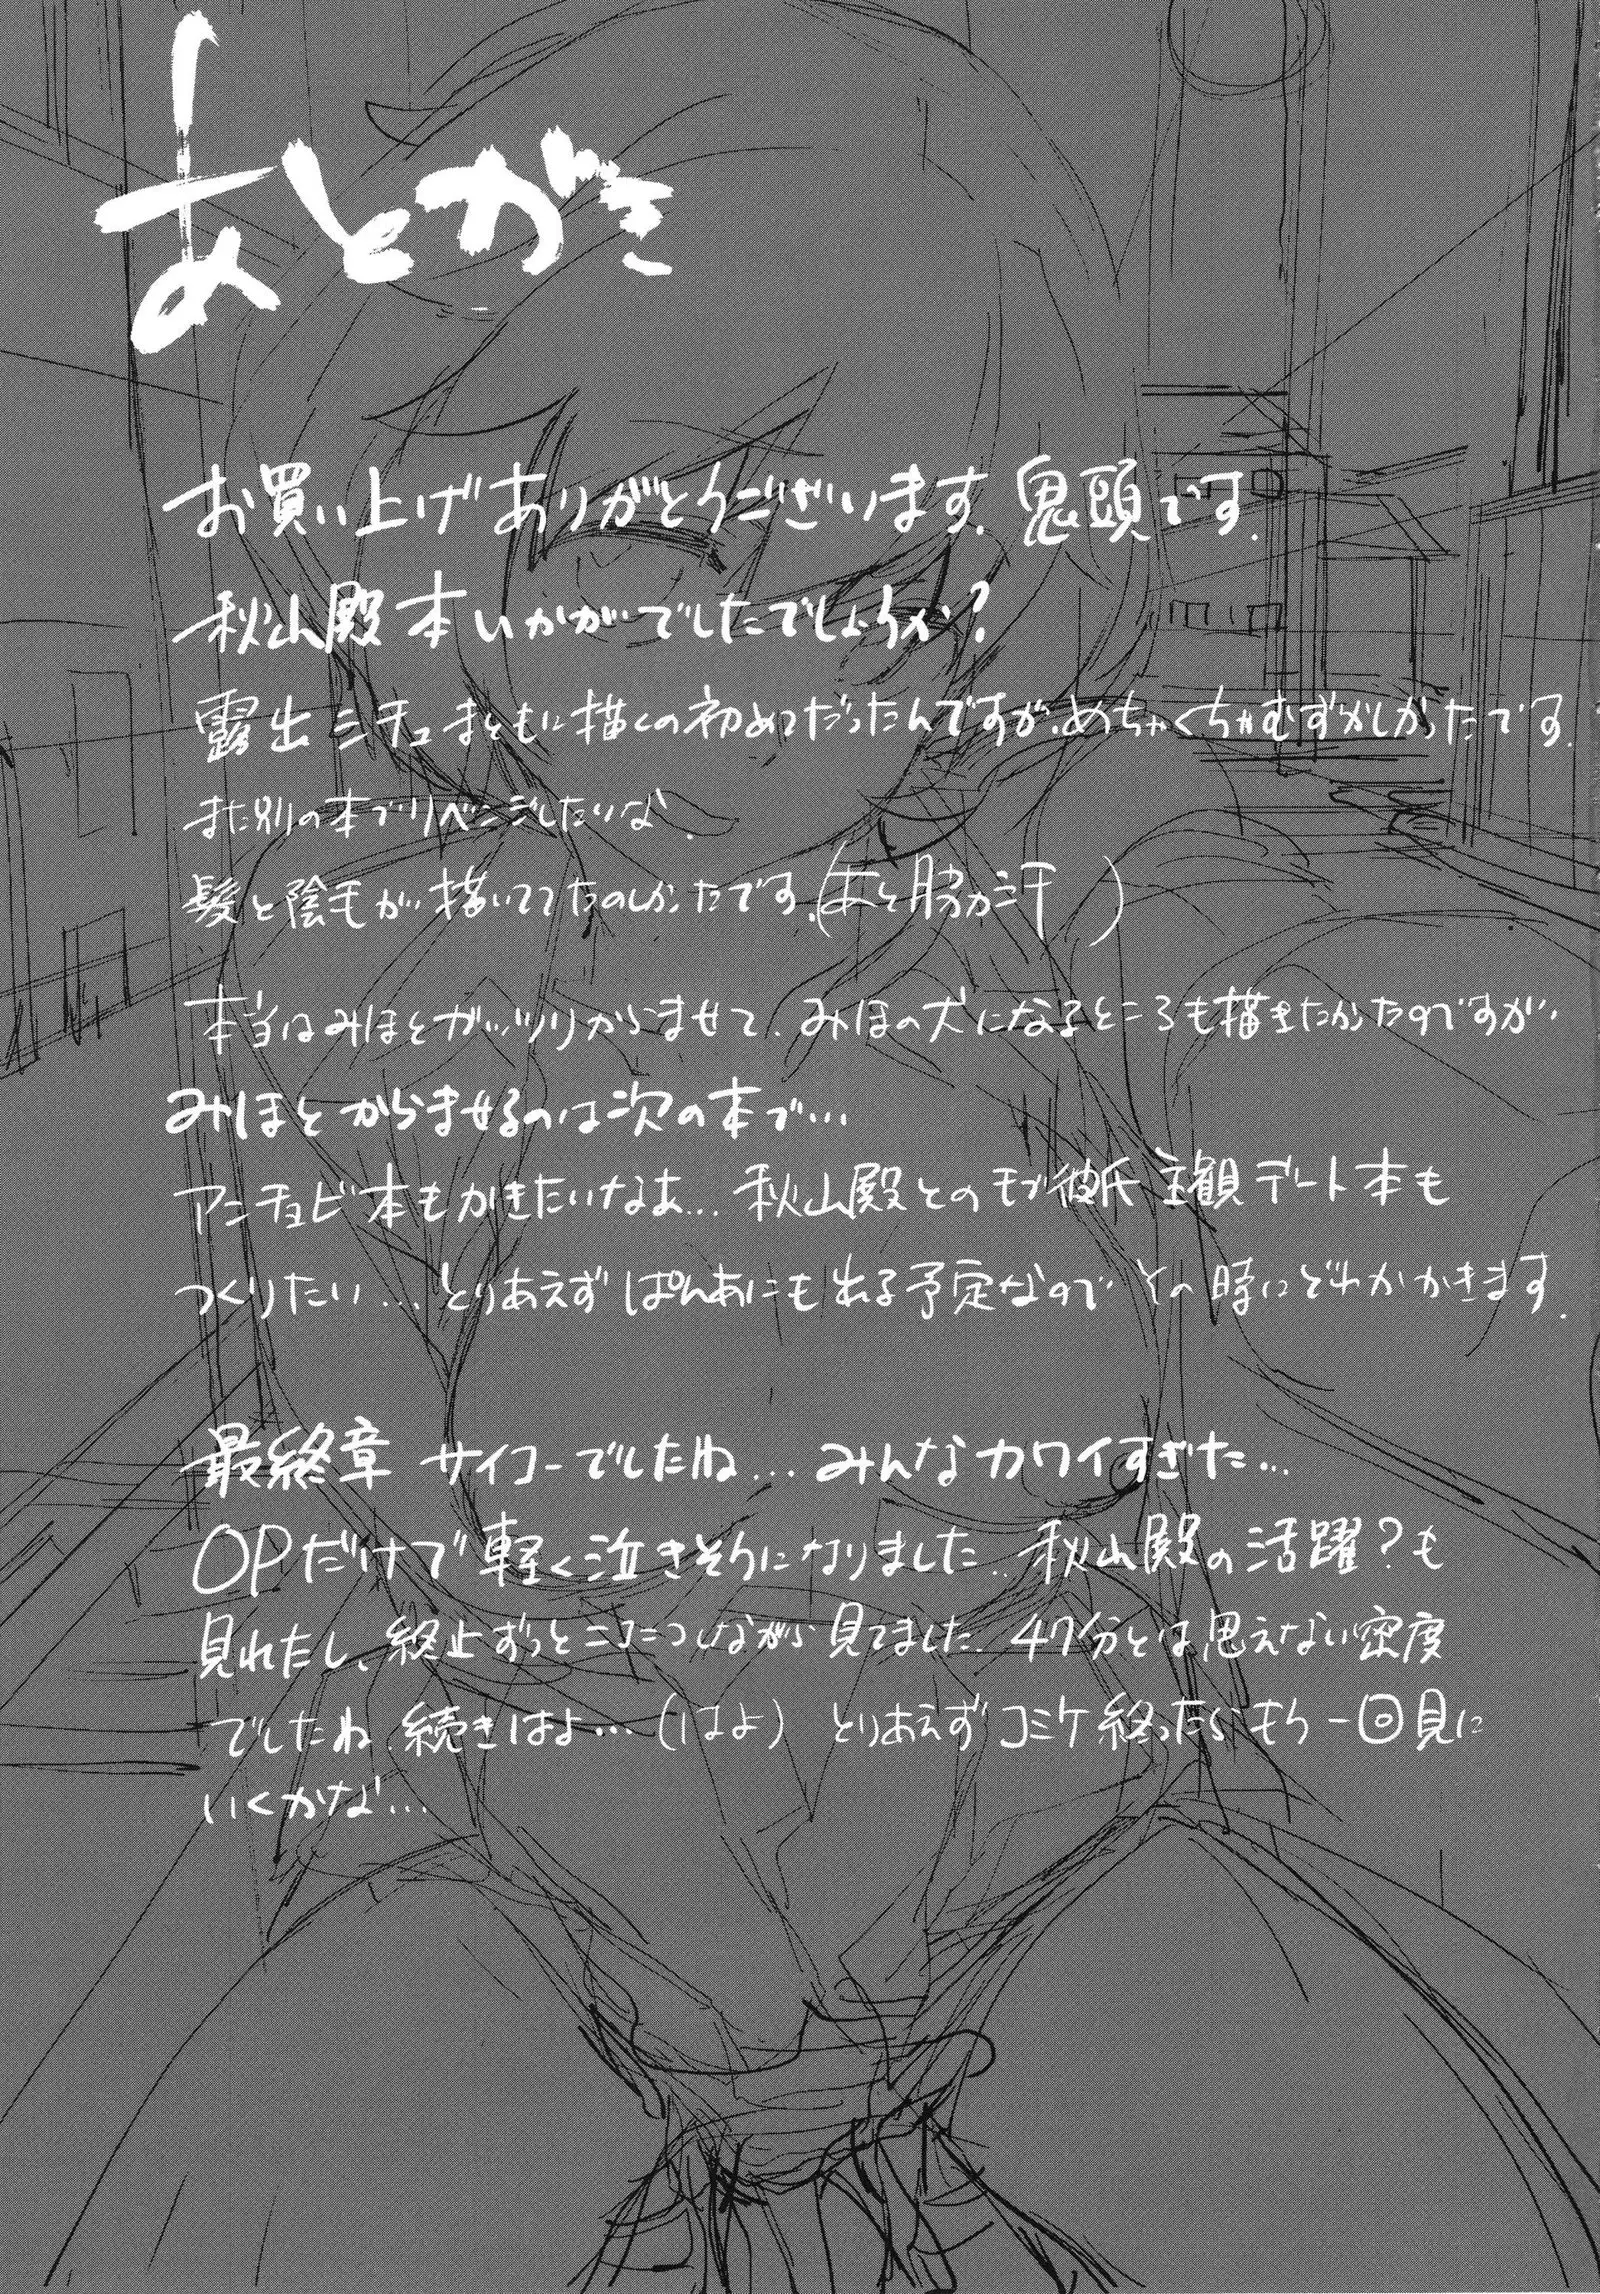 あとがき
お買い上げありがとうございます。鬼頭です。
秋山殿本いかがでしたでしょうか?
露出シチュまともに描くの初めてだったんですが、めちゃくちゃむずかしかったです。
また別の本でリベンジしたいな。
髪と陰毛が描いててたのしかったです。(あと脇汗)
本当はみほとガッツリからませて、みほの犬になるところも描きたかったのですが、
みほとからませるのは次の本で…
アンチョビ本もかきたいなぁ… 秋山殿とのモブ彼氏主観デート本も
つくりたい… とりあえずぱんあにも出る予定なのでその時にどれかかきます。
最終章 サイコーでしたね… みんなカワイすぎた…
OPだけで軽く泣きそうになりました… 秋山殿の活躍?も
見れたし、終止ずっとニコニコしながら見てました。47分とは思えない密度
でしたね 続きはよ…(はよ) とりあえずコミケ終ったらもう一回見に
いくかな…